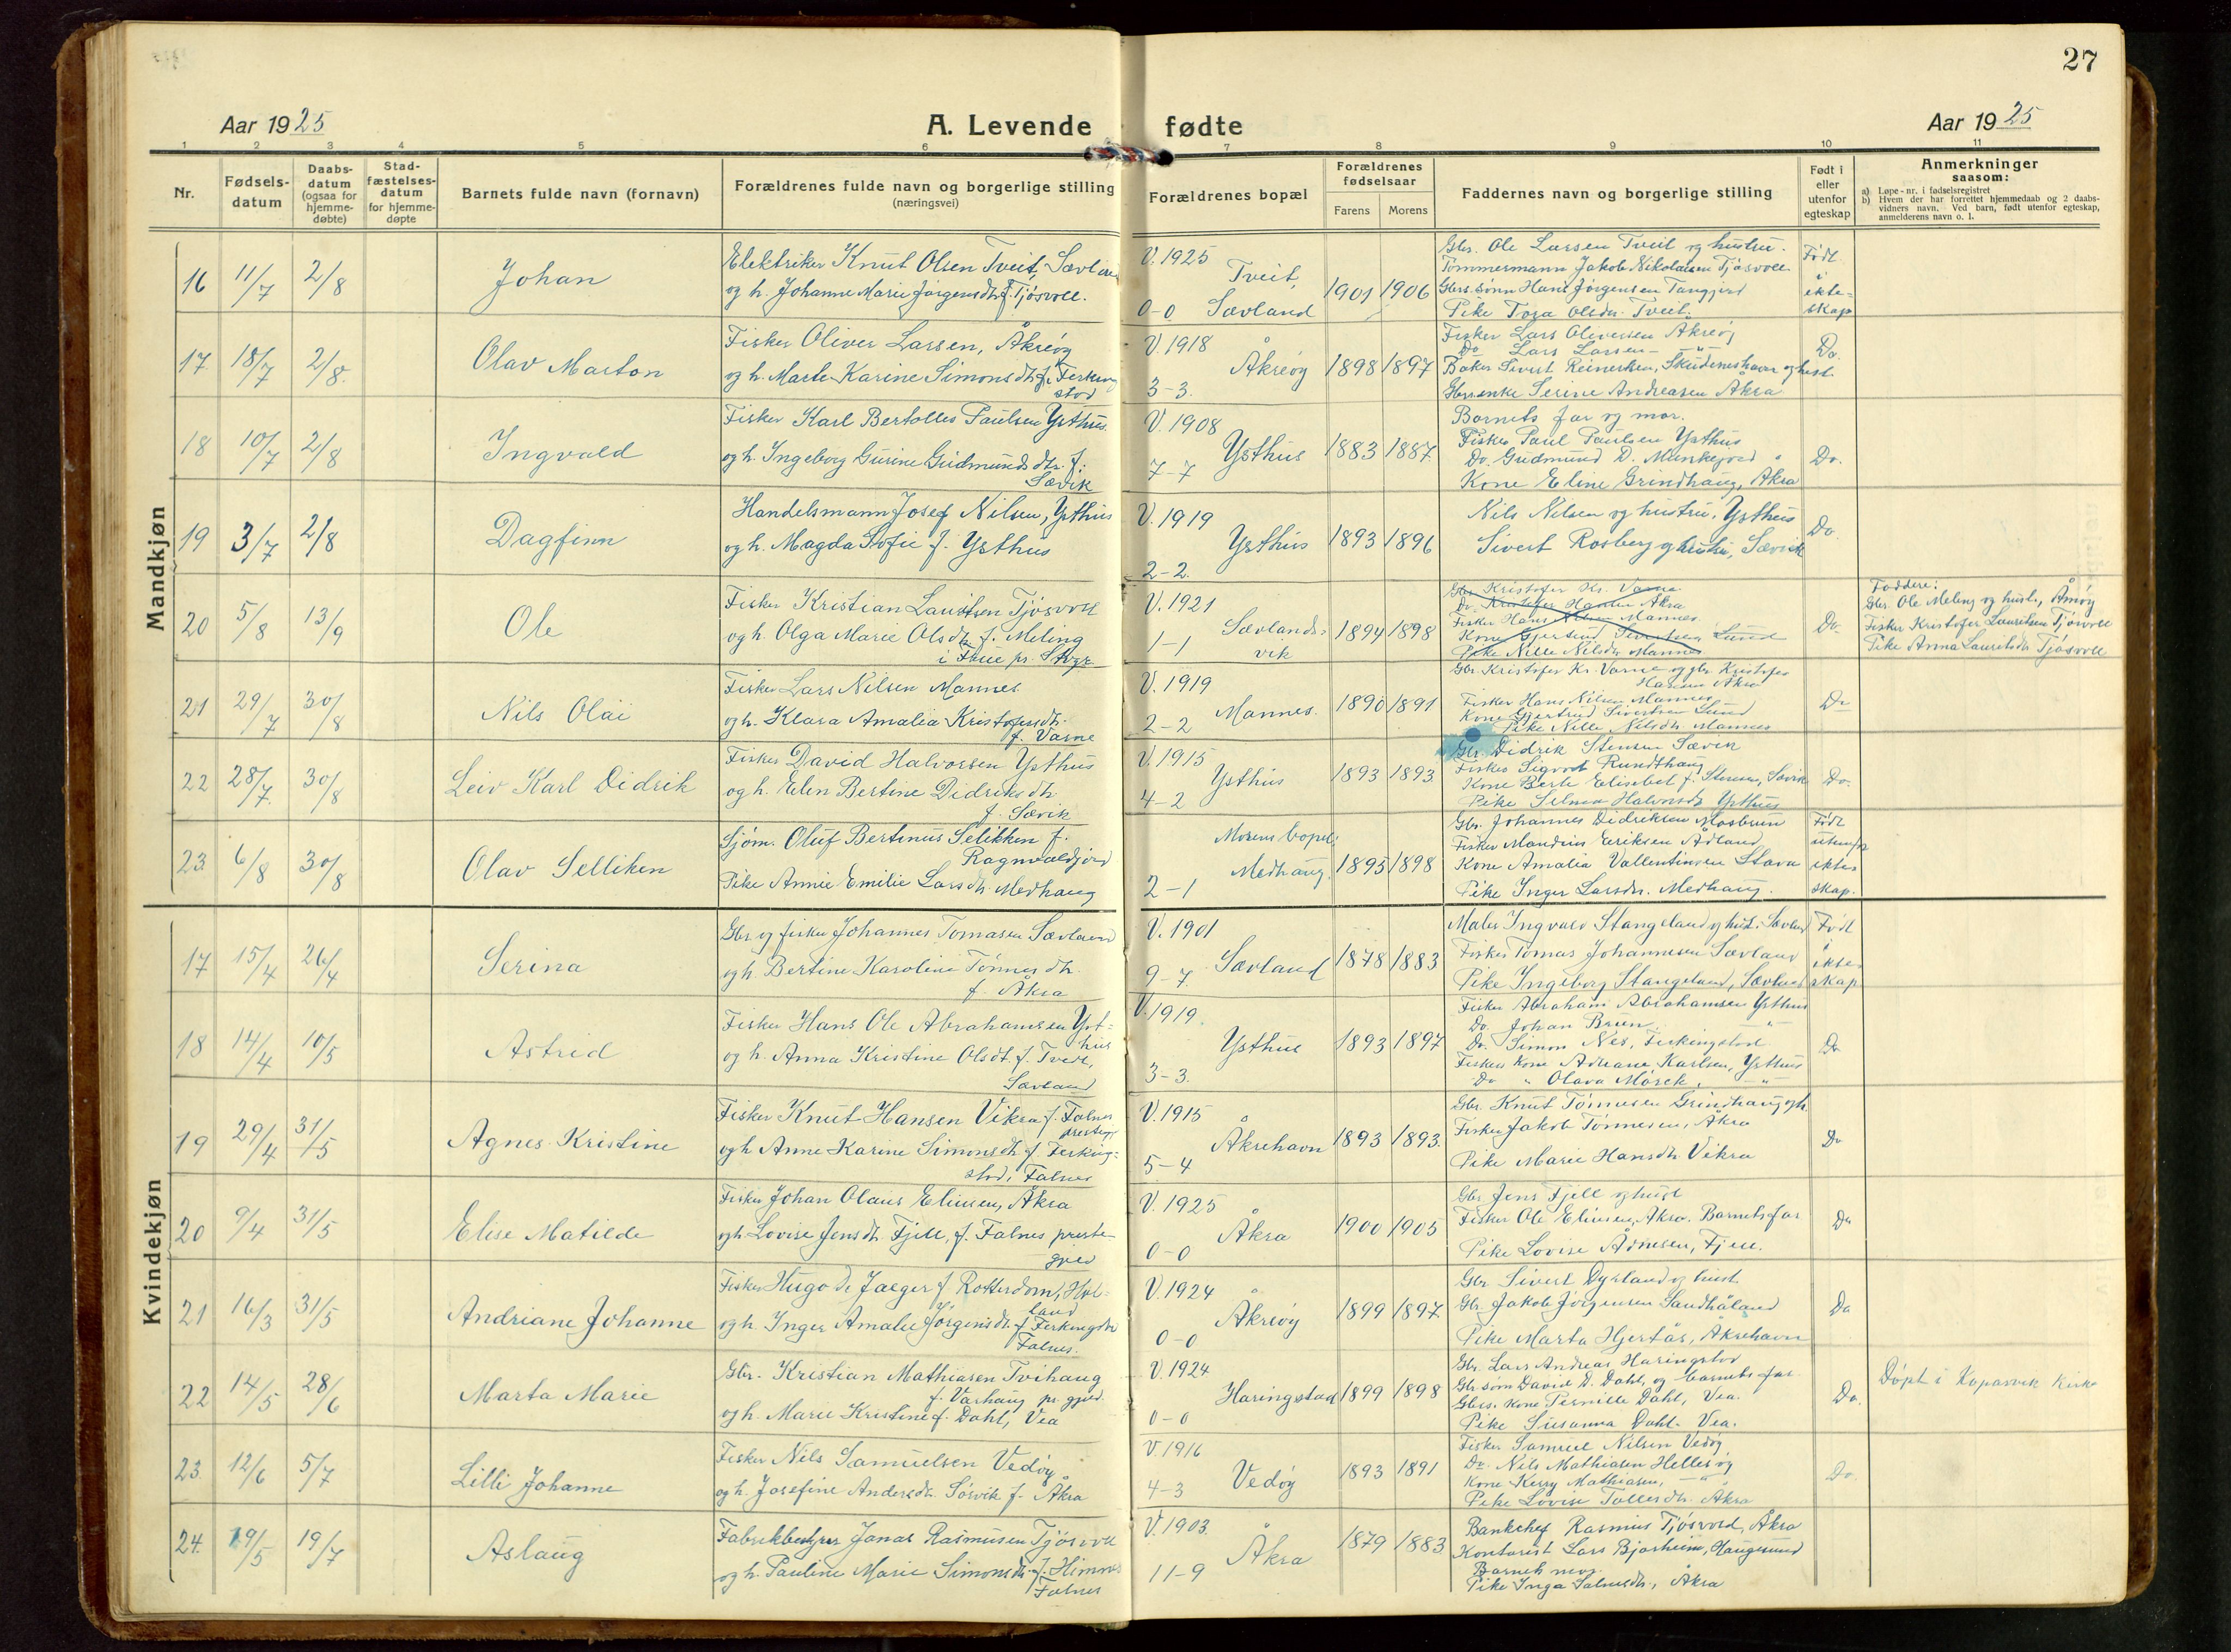 27
Aar 1925
A. Levende fødte
Aar 1925
1 2 3 4 5 6 7 8 9 10 11
Nr.
Fødsels-
datum
Daabs-
datum
(ogsaa for
hjemme-
døbte)
Stad-
fæstelses-
datum
for hjemme-
døpte
Barnets fulde navn (fornavn)
Forældrenes fulde navn og borgerlige stilling
(næringsvei)
Forældrenes bopæl
Forældrenes
fødselsaar
Farens
Morens
Faddernes navn og borgerlige stilling
Født i
eller
utenfor
egteskap
Anmerkninger
saasom:
a) Løpe-nr. i fødselsregistret
b) Hvem der har forrettet hjemmedaab og 2 daabs-
vidners navn. Ved barn, født utenfor egteskap,
anmelderens navn o. l.
Mandkjøn
16 11/7 2/8 Johan
Elektriker Knut Olsen Tveit, Sævland
og h. Johanne Marie Jørgensdtr. f. Tjøsvoll.
V. 1925
Tveit,
0-0 Sævland
1901 1906
Gbr. Ole Larsen Tveit og hustru.
Tømmermann Jakob Nikolaisen Tjøsvoll
Gbrs. sønn Hans Jørgensen Tangjerd
Pike Tora Olsdtr. Tveit.
Født
i
ekte-
skap
17 18/7 2/8. Olav Marton
Fisker Oliver Larsen, Åkreøy
og h. Marte Karine Simonsdtr. f. Ferking
stod
V. 1918
Åkreøy
3-3.
1898 1897
Fisker Lars Oliversen Åkreøy
Do Lars Larsen — " —
Baker Sivert Reinertsen, Skudeneshavn og hust.
Gbr.enke Serine Andreasen Åkra
Do.
18 10/7 2/8 Ingvald
Fisker Karl Bertolles Paulsen Ysthus
og h. Ingeborg Gurine Gudmundsdtr. f.
Sævik
V. 1908
Ysthus
7-7
1883 1887
Barnets far og mor.
Fisker Paul Paulsen Ysthus
Do. Gudmund D. Munkejord "
Kone Eline Grindhaug, Åkra
Do.
19 3/7 2/8 Dagfinn
Handelsmann Josef Nilsen, Ysthus
og h. Magda Sofie f. Ysthus
V. 1919
Ysthus
2-2.
1893 1896
Nils Nilsen og hustru, Ysthus
Sivert Rosberg og hustru, Sævik
Do.
20 5/8 13/9 Ole
Fisker Kristian Lauritsen Tjøsvoll
og h. Olga Marie Olsdtr. f. Meling
V. 1921
Sævlands-
vik
1-1
1894 1898
Gbr. Kristofer Kr. Varne
Do. Kristofer Hansen Åkra
Fisker Hans Nilsen Mannes
Kone Gjertrud Sivertsen Lund
Pike Nille Nilsdtr Mannes
Do.
Faddere:
Gbr. Ole Meling og hust., Åmøy
Fisker Kristofer Lauritsen Tjøsvoll
Pike Anna Lauritsdtr Tjøsvoll
21 29/7 30/8 Nils Olai
Fisker Lars Nilsen Mannes
og h. Klara Amalia Kristofersdtr.
f. Varne
V. 1919
Mannes.
2-2
1890 1891
Gbr. Kristofer Kr. Varne og gbr. Kristofer
Hansen Åkra
Fisker Hans Nilsen Mannes
Kone Gjertrud Sivertsen Lund
Pike Nille Nilsdtr. Mannes
Do
22 28/7. 30/8 Leiv Karl Didrik
Fisker David Halvorsen Ysthus
og h. Elen Bertine Didriksdtr.
f. Sævik
V. 1915
Ysthus
4-2
1893 1893
Gbr. Didrik Stensen Sævik
Fisker Sigvart Rundthaug
Kone Berte Elisabet f. Stensen, Sævik
Pike Selma Halvorsdtr Ysthus
Do.
23 6/8 30/8 Olav Selliken
Sjøm. Oluf Bertinus Selikken f.
Ragnvaldjord
Pike Annie Emilie Larsdtr. Medhaug
Morens bopel:
Medhaug
2-1
1895 1898
Gbr. Johannes Didriksen Mosbrun
Fisker Mandius Eriksen Ådland
Kone Amalia Vallentinsen Stava
Pike Inger Larsdtr. Medhaug.
Født
utenfor
ekte
skap.
Kvindekjøn
17 15/4 26/4 Serina
Gbr og fisker Johannes Tomasen Sævland
og h. Bertine Karoline Tønnesdtr.
f. Åkra
V. 1901
Sævland
9-7
1878 1883
Maler Ingvald Stangeland og hust. Sævland
Fisker Tomas Johannesen Sævland
Pike Ingeborg Stangeland, Sævland
Født
i
ekte-
skap
18 14/4 10/5 Astrid
Fisker Hans Ole Abrahamsen Yst-
hus
og h. Anna Kristine Olsdt. f. Tveit,
Sævland
V. 1919
Ysthus
3-3.
1893 1897
Fisker Abraham Abrahamsen Ysthus
Do. Johan Bruen — " —
Do. Simon Nes, Ferkingstad
Fiskers kone Adriane Karlsen, Ysthus
Do " Olava Mørck, — " —
Do
19 29/4 31/5 Agnes Kristine
Fisker Knut Hansen Vikra f. Falnes
prestegj.
og h Anne Karine Simonsdtr. f. Ferking-
stad, Falnes
V. 1915
Åkrehavn
5-4
1893 1893.
Gbr. Knut Tønnesen Grindhaug og h.
Fisker Jakob Tønnesen, Åkra
Pike Marie Hansdtr Vikra
Do
20 9/4 31/5 Elise Matilde
Fisker Johan Olaus Eliusen, Åkra
og h Lovise Jensdtr. Fjell, f. Falnes preste-
gjeld
V. 1925
Åkra
0-0
1900 1905
Gbr Jens Fjell og hust
Fisker Ole Eliusen, Åkra. Barnets far
Pike Lovise Ådnesen, Fjell.
Do
21 16/3 31/5 Andriane Johanne
Fisker Hugo de Jaeger f. Rotterdam, Hol-
land
og h. Inger Amalie Jørgensdtr. f. Ferkingstad
Falnes.
V. 1924
Åkreøy
0-0
1899 1897.
Gbr Sivert Dyrland og hust
Gbr. Jakob Jørgensen Sandhåland
Pike Marta Hjertås, Åkrehavn
Do
22 14/5 28/6 Marta Marie
Gbr. Kristian Mathiasen Tvihaug
f. Varhaug pr.gjeld.
og h. Marie Kristine f. Dahl, Vea
V. 1924
Haringstad
0-0
1899 1898
Gbr. Lars Andreas Haringstad
Gbr. sønn David D. Dahl, og barnets far
Gbrs. kone Pernille Dahl, Vea.
Pike Susanna Dahl. Vea.
Do.
Døpt i Kopervik kirke
23. 12/6 5/7 Lilli Johanne
Fisker Nils Samuelsen Vedøy
og h. Josefine Andersdtr. Sørvik f. Åkra
V. 1916
Vedøy
4-3
1893 1891
Fisker Samuel Nilsen Vedøy
Do. Nils Mathiasen Hellesøy
Kone Kerry Mathiasen, — " —
Pike Lovise Tollesdtr. Åkra
Do.
24. 19/5 19/7 Aslaug
Fabrikbestyrer Jonas Rasmussen Tjøsvoll
og h. Pauline Marie Simonsdtr. f. Himnes
Falnes
V. 1903.
Åkra
11-9
1879 1883
Bankchef Rasmus Tjøsvold, Åkra
Kontorist Lars Bjørheim, Haugesund
Barnets mor.
Pike Inga Salmesdtr., Åkra